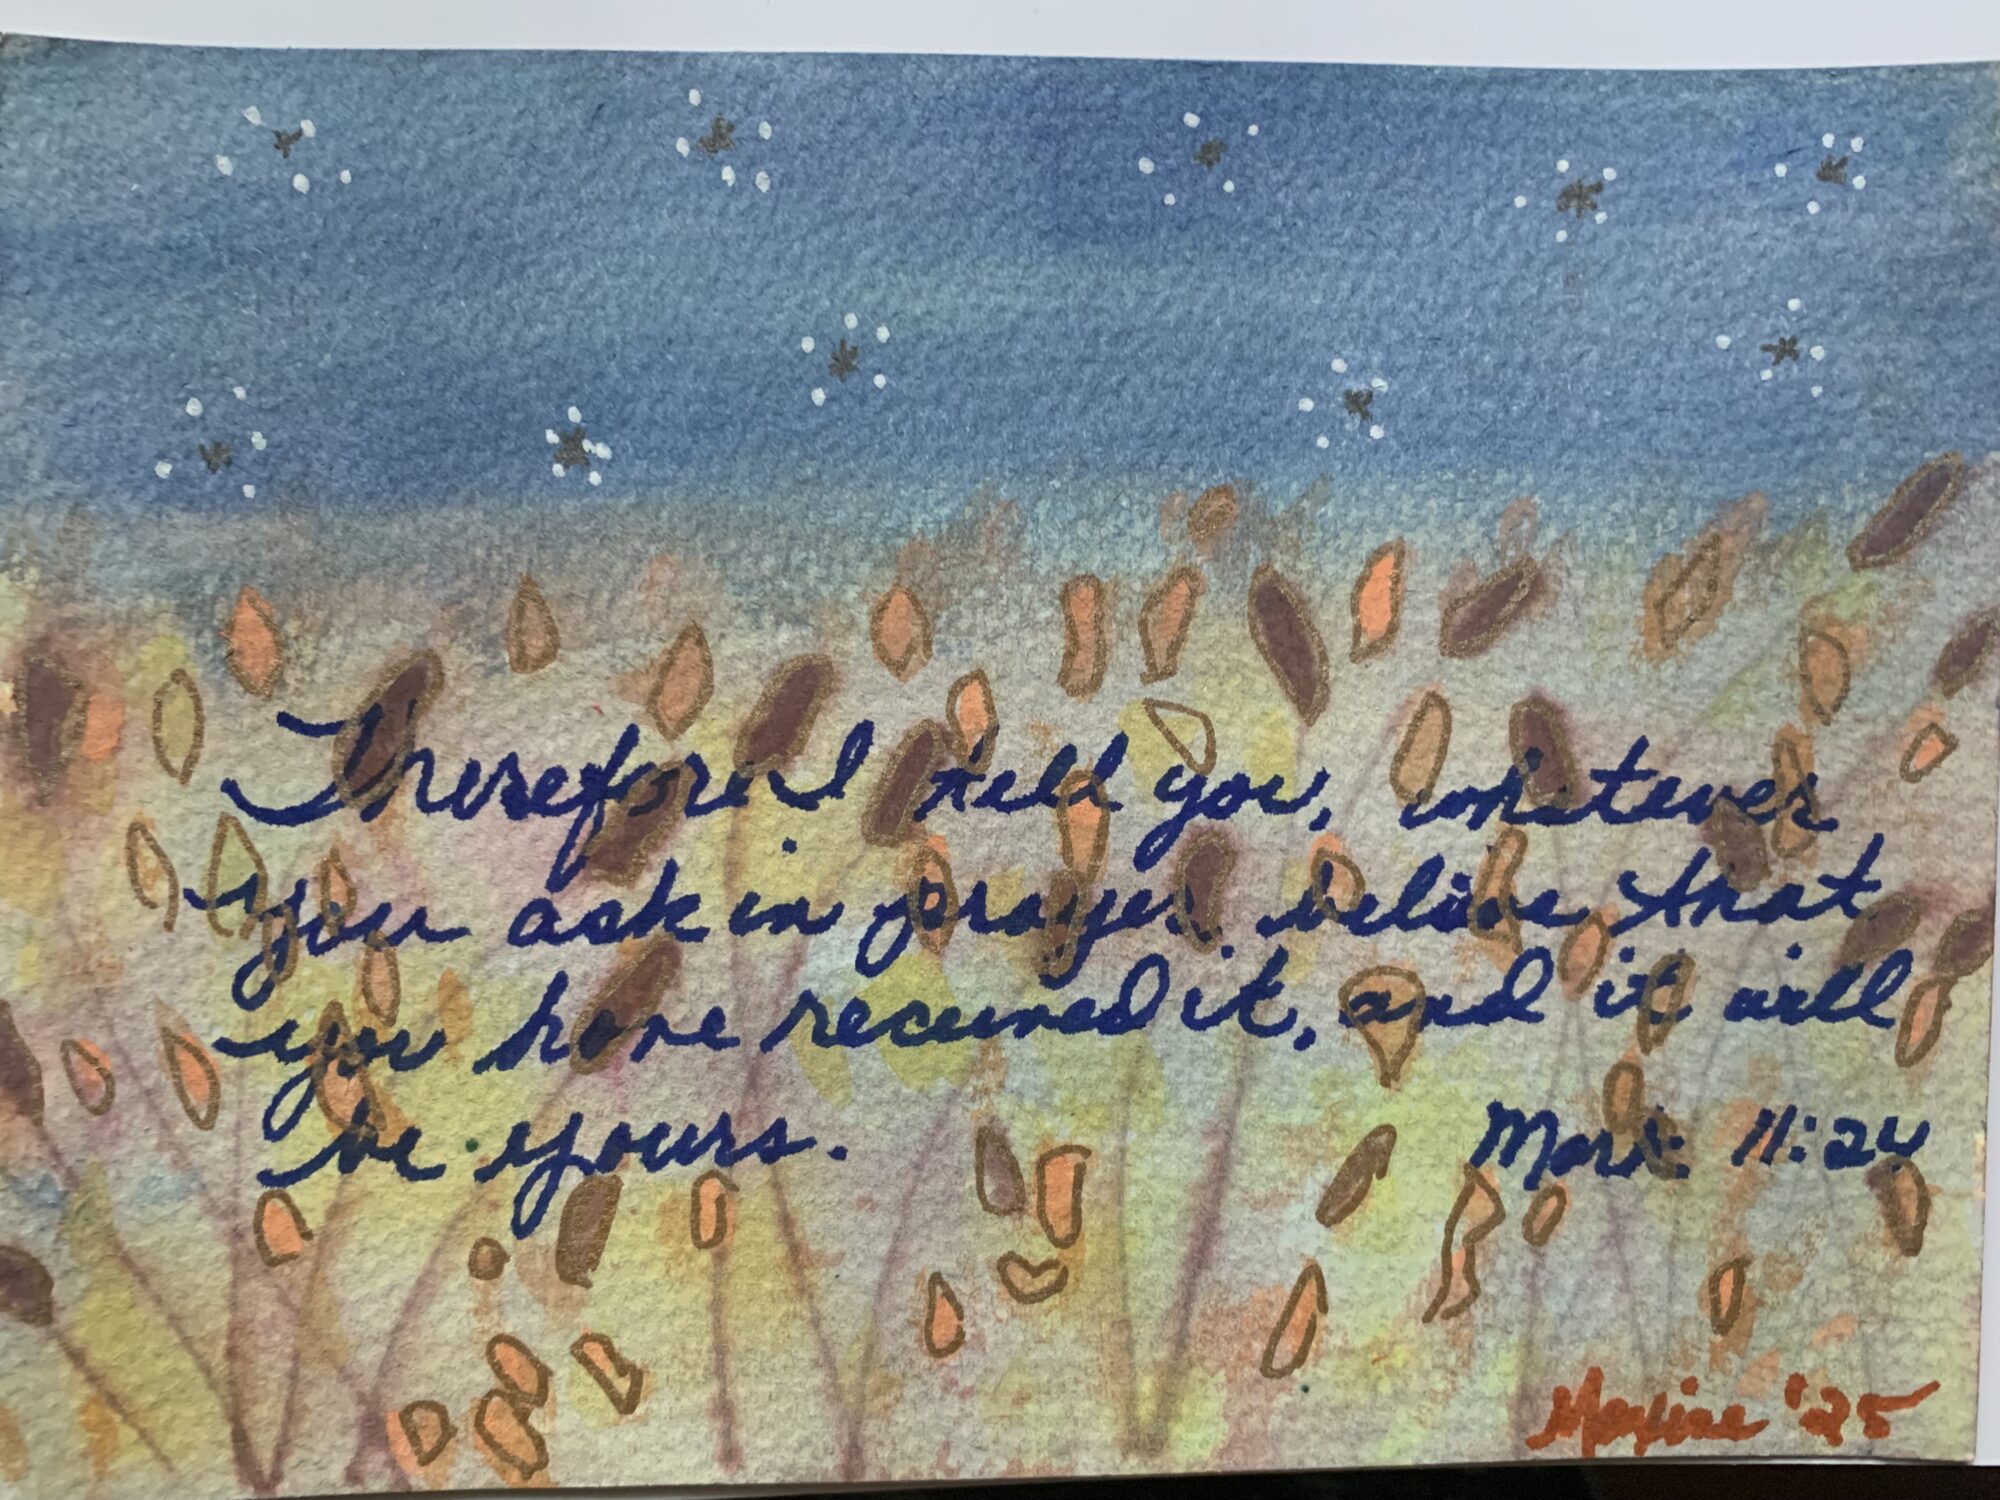 Therefore I tell you, whatever
you ask in prayer, believe that
you have received it, and it will
be yours.
Mark 11:24
Maxine '25